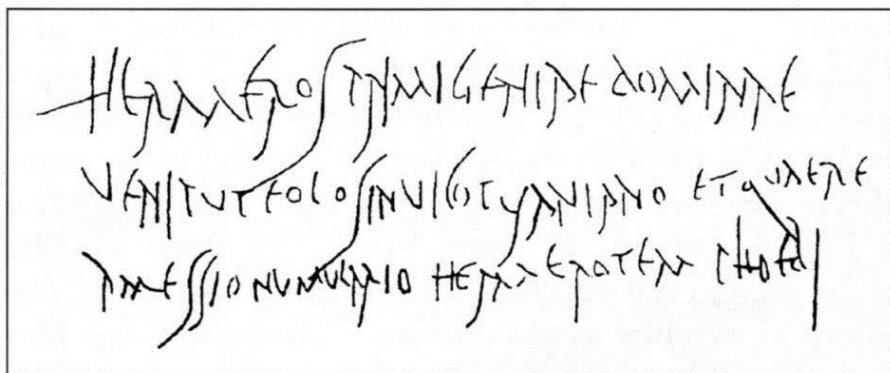 HERMEROS PRIMIGENIAE DOMINAE
VENI PVTEOLOS IN VICO TYANIANO ET QVAERE
A MESSIO NVMVLARIO HERMEROTEM PHOEBI